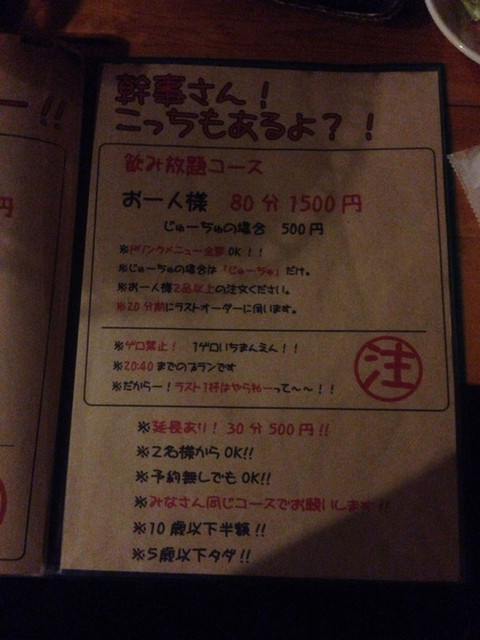 ー!!
円
幹事さん！
こっちもあるよ？！
飲み放題コース
お一人様 80分 1500円
じゅーちゅの場合 500円
※ドリンクメニュー全部OK！！
※じゅーちゅの場合は「じゅーちゅ」だけ。
※お一人様2品以上の注文ください。
※20分前にラストオーダーに伺います。
※ゲロ禁止！ 1ゲロいちまんえん！！
※20:40までのプランです
※だからー！ラスト1杯はやらねーって〜〜！！
注
※延長あり！30分500円!!
※2名様からOK!!
※予約無しでもOK!!
※みなさん同じコースでお願いします!!
※10歳以下半額!!
※5歳以下タダ!!